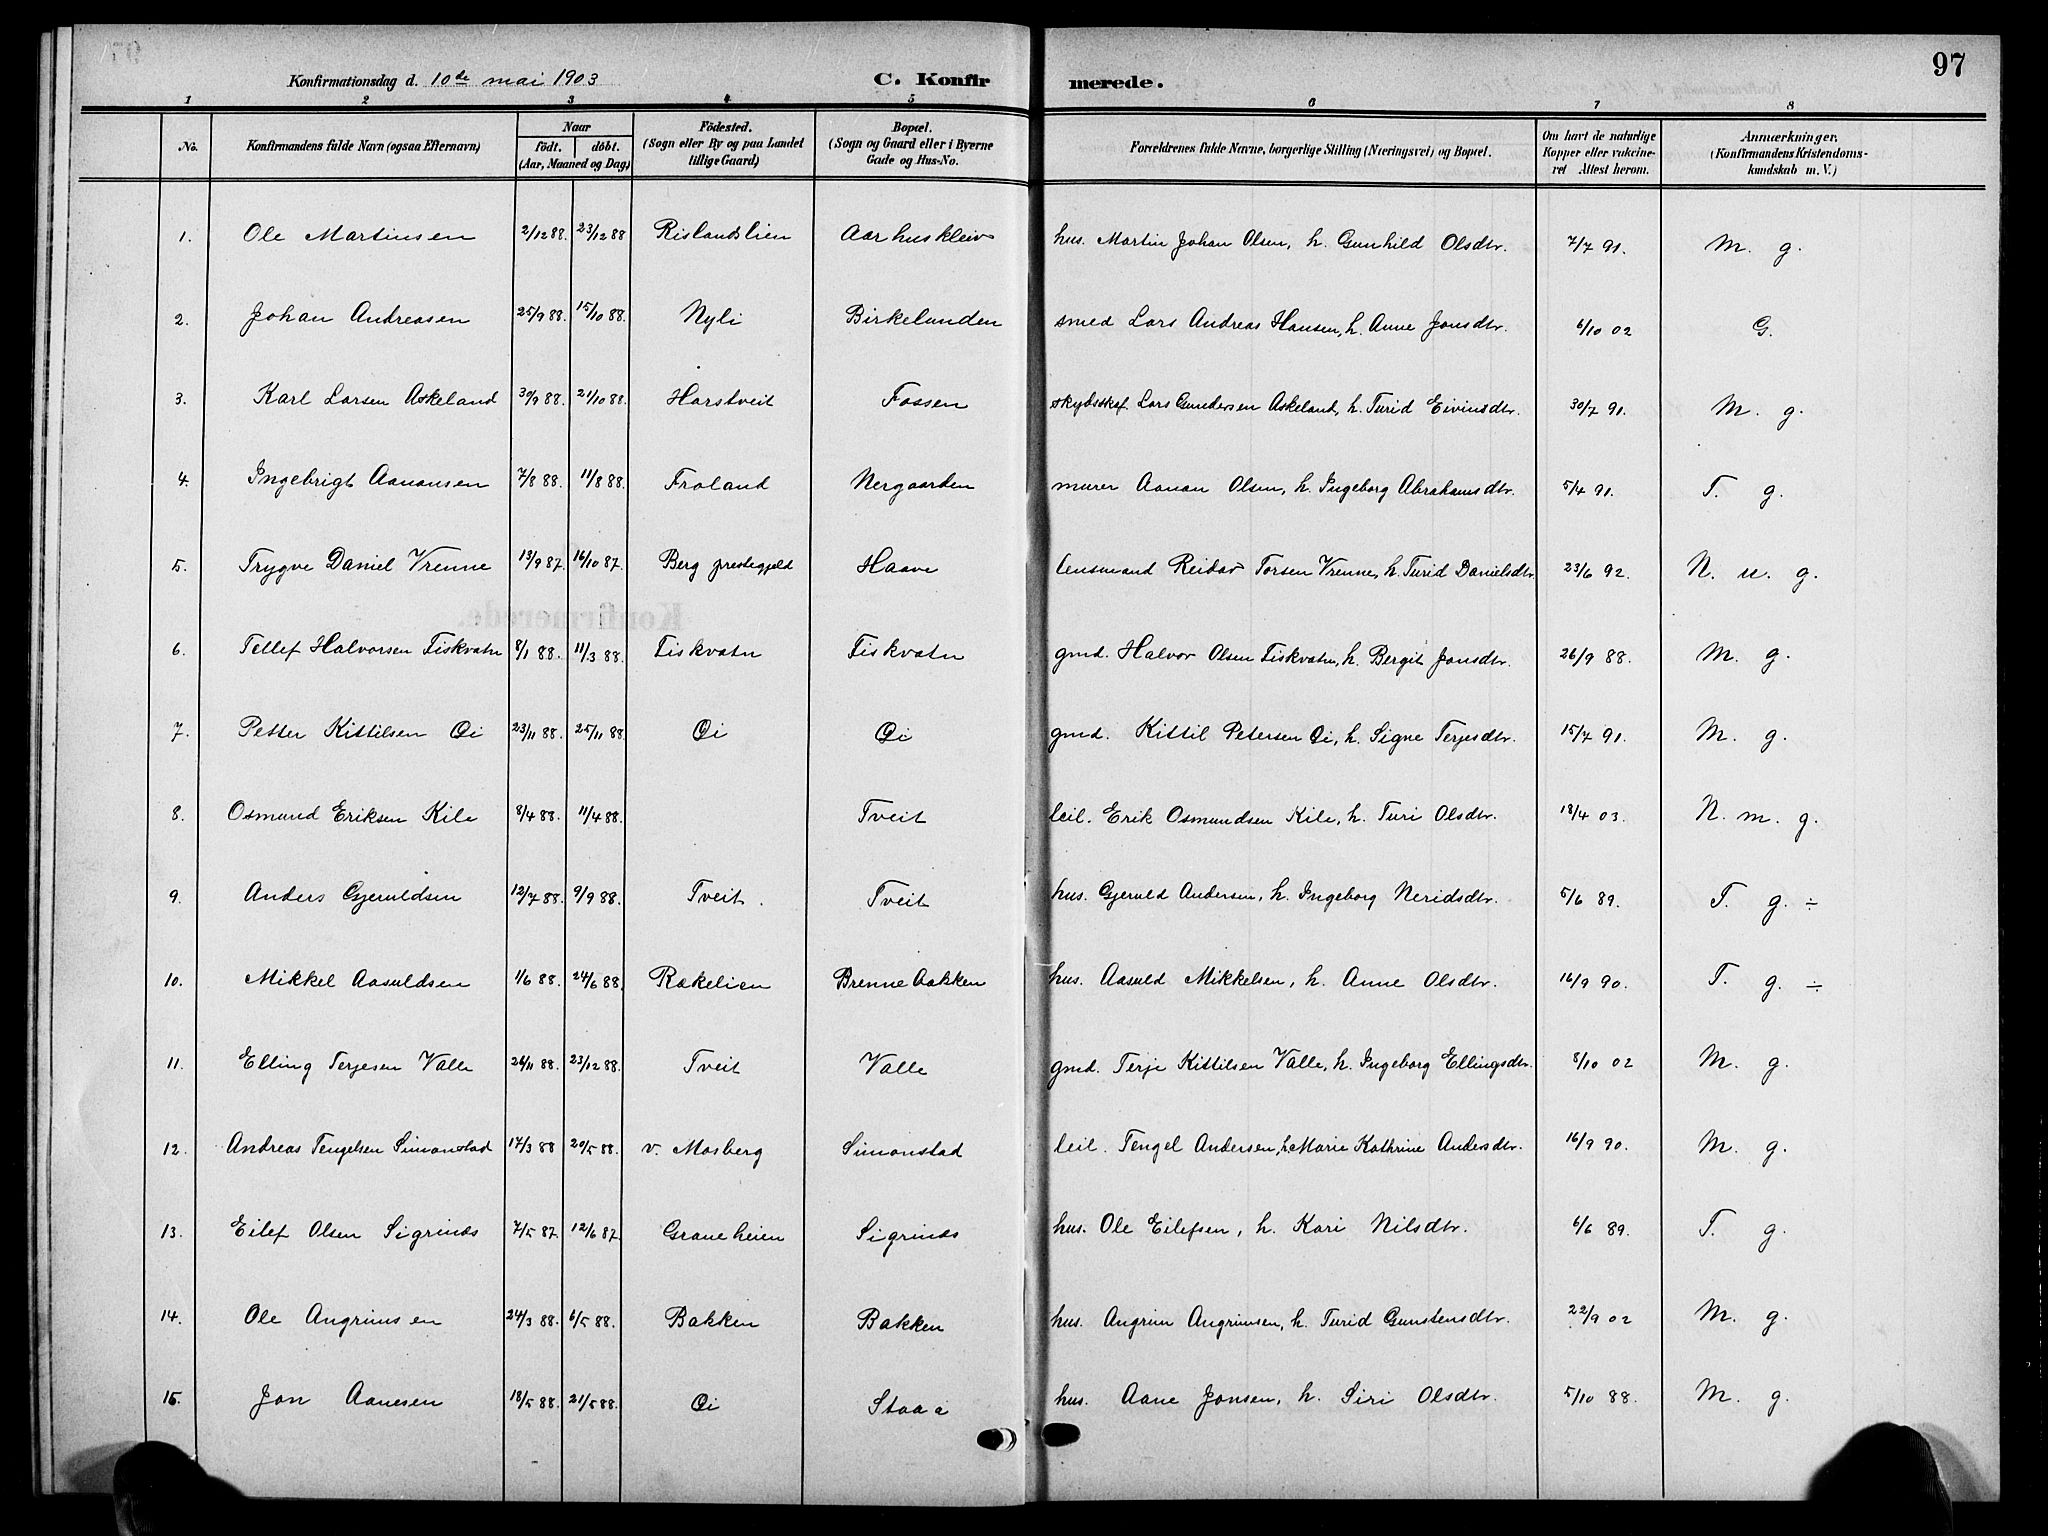 97
Konfirmationsdag d. 10de mai 1903 C. Konfirmerede.
1 2 3 4 5 6 7 8
No. Konfirmandens fulde Navn (ogsaa Efternavn) Naar födt. döbt. (Aar, Maaned og Dag) Födested. (Sogn eller By og paa Landet tillige Gaard) Bopæl. (Sogn og Gaard eller i Byerne Gade og Hus-No. Forældrenes fulde Navne, borgerlige Stilling (Næringsvei) og Bopæl. Om havt de naturlige Kopper eller vakcineret Attest herom. Anmærkninger. (Konfirmandens Kristendomskundskab m. V.)
1. Ole Martinsen 2/12 88. 23/12 88 Rislandslien Aarhuskleiv hus. Martin Johan Olsen, h. Gunhild Olsdtr. 7/7 91. M. g.
2. Johan Andreasen 25/9 88. 15/10 88. Nyli Birkelunden smed Lars Andreas Hansen, h. Anne Jonsdtr. 6/10 02 G.
3. Karl Larsen Askeland 30/9 88. 21/10 88. Harstveit Fossen skydsskaf. Lars Gundersen Askeland, h. Turid Eivindsdtr. 30/7 91. M. g.
4. Ingebrigt Aanonsen 7/8 88. 11/8 88. Froland Nergaarden murer Aanon Olsen, h. Ingeborg Abrahamsdtr. 5/4 91. T. g.
5. Trygve Daniel Vrenne 13/9 87. 16/10 87. Berg prestegjeld Haave lensmand Reidar Torsen Vrenne, h. Turid Danielsdtr. 23/6 92. N. u. g.
6. Tellef Halvorsen Fiskvatn 8/1 88. 11/3 88. Fiskvatn Fiskvatn gmd. Halvor Olsen Fiskvatn, h. Bergit Jonsdtr. 26/9 88. M. g.
7. Petter Kittilsen Øi 23/11 88. 25/11 88. Øi Øi gmd. Kittil Petersen Øi, h. Signe Terjesdtr. 15/7 91. M. g.
8. Osmund Eriksen Kile 8/4 88. 11/4 88. Tveit leil. Erik Osmundsen Kile, h. Turi Olsdtr. 18/4 03. N. m. g.
9. Anders Gjeruldsen 12/7 88. 9/9 88. Tveit. Tveit hus. Gjeruld Andersen, h. Ingeborg Neridsdtr. 5/6 89. T. g. ÷
10. Mikkel Aasuldsen 1/6 88. 24/6 88. Rækelien Brennebakken hus. Aasuld Mikkelsen, h. Anne Olsdtr. 16/9 90. T. g. ÷
11. Elling Terjesen Valle 26/11 88. 23/12 88. Tveit Valle gmd. Terje Kittilsen Valle, h. Ingeborg Ellingsdtr. 8/10 02 M. g.
12. Andreas Tengelsen Simonstad 17/3 88 20/5 88. v. Mosberg Simonstad leil. Tengel Andersen, h. Marie Kathrine Andersdtr. 16/9 90. M. g.
13. Eilef Olsen Sigrinds 7/5 87. 12/6 87. Graneheien Sigrinds hus. Ole Eilefsen, h. Kari Nilsdtr. 6/6 89. T. g.
14. Ole Angrimsen 24/3 88. 6/5 88. Bakken Bakken hus. Angrim Angrimsen, h. Turid Gunstensdtr. 22/9 02 M. g.
15. Jon Aanesen 18/5 88. 21/5 88. Øi Staa hus. Aane Jonsen, h. Siri Olsdtr. 5/10 88. M. g.